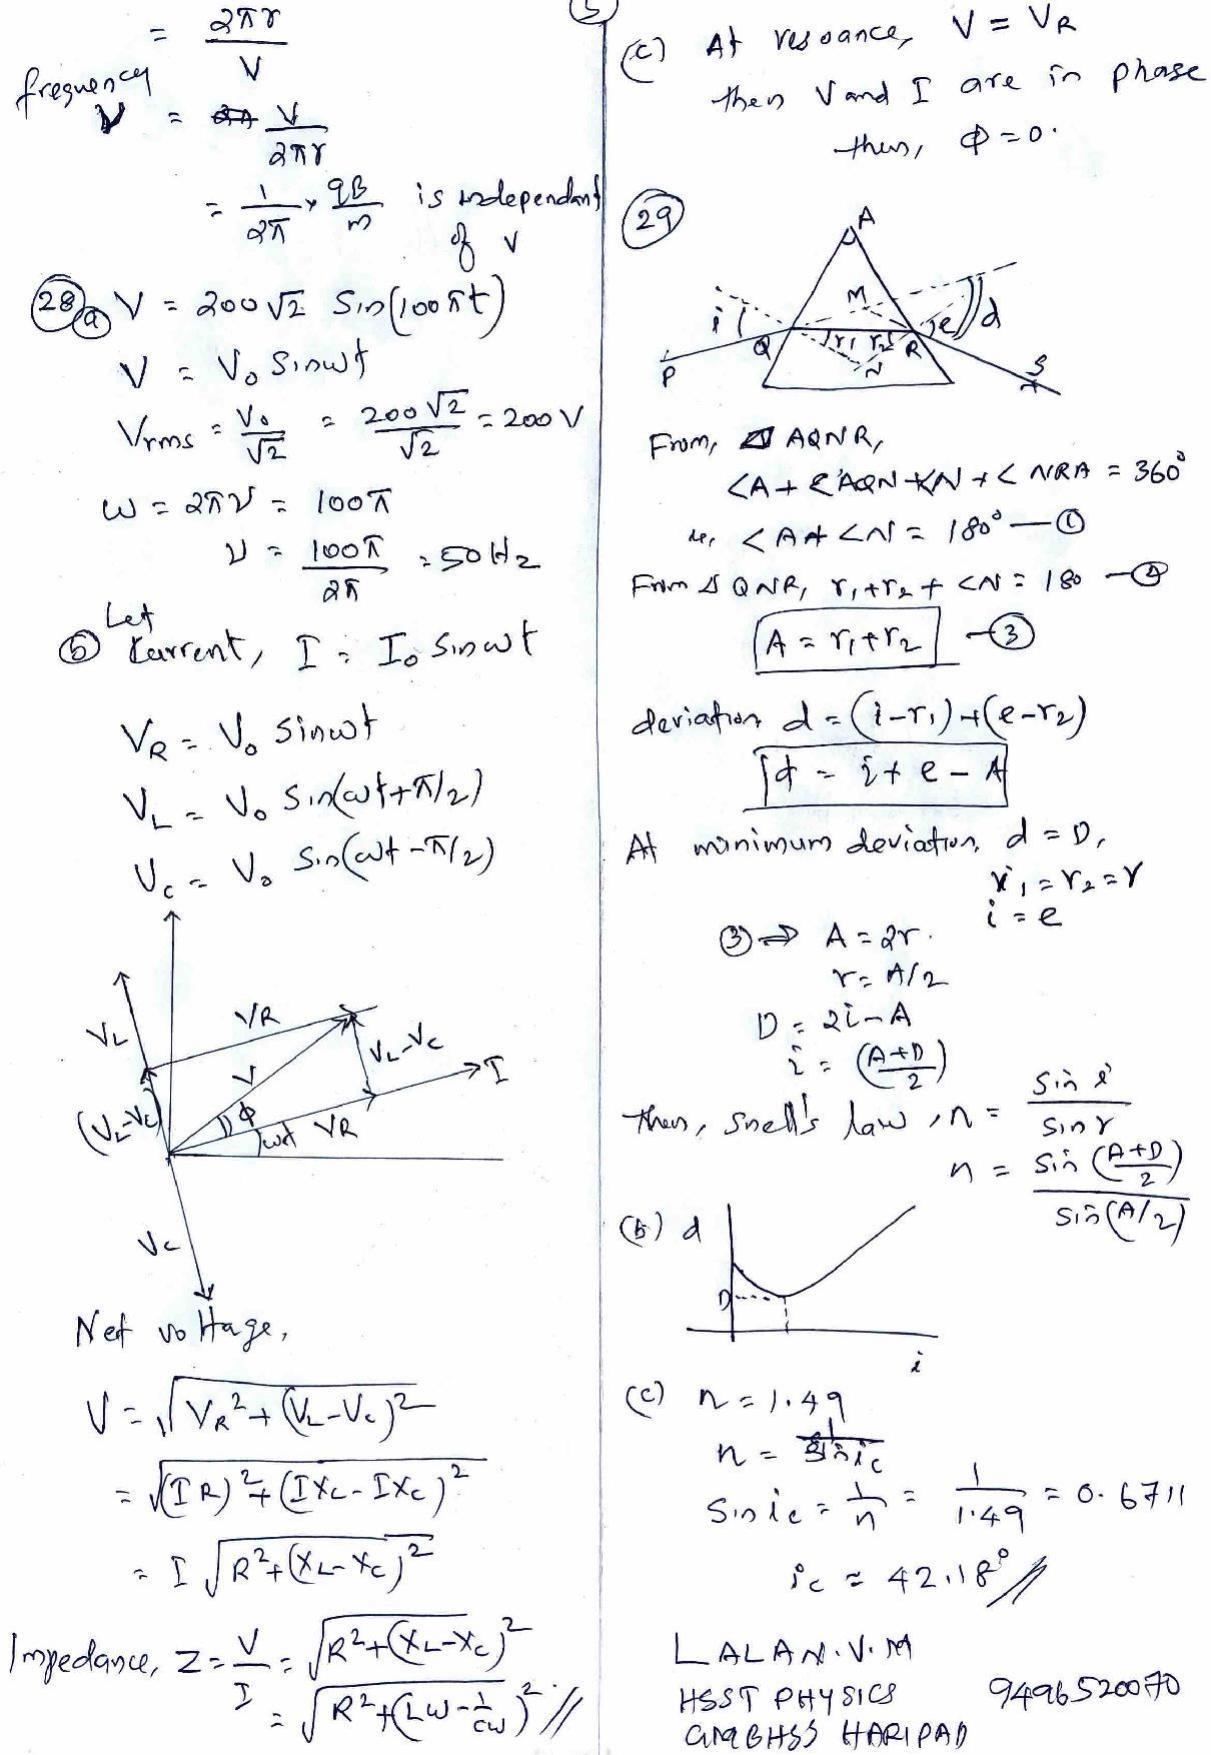 5
= 2πr / V
frequency
ν = V / 2πr
= 1/2π × qB/m is independant
of v
28 a V = 200√2 Sin(100πt)
V = V₀ Sinωt
Vrms = V₀/√2 = 200√2/√2 = 200V
ω = 2πν = 100π
ν = 100π/2π = 50Hz
Let
b Current, I = I₀ Sinωt
V_R = V₀ Sinωt
V_L = V₀ Sin(ωt+π/2)
V_C = V₀ Sin(ωt-π/2)
V_L
V_R
V_L-V_C
I
V
(V_L-V_C)
ϕ
ωt
V_R
V_C
Net voltage,
V = √(V_R² + (V_L-V_C)²)
= √((IR)² + (IX_L-IX_C)²)
= I √(R² + (X_L-X_C)²)
Impedance, Z = V/I = √(R² + (X_L-X_C)²)
= √(R² + (Lω - 1/Cω)²) //
(c) At resoance, V = V_R
then V and I are in phase
then, ϕ = 0.
29
A
M
i
e
d
Q
r₁
r₂
R
P
N
S
From, AQNR,
<A + <AQN + <N + < NRA = 360°
ie, <A + <N = 180° — ①
From Δ QNR, r₁+r₂+ <N = 180 — ②
A = r₁+r₂ — ③
deviation d = (i-r₁)+(e-r₂)
d = i + e - A
At minimum deviation, d = D,
r₁ = r₂ = r
i = e
③ ⇒ A = 2r.
r = A/2
D = 2i-A
i = (A+D / 2)
then, snell's law, n = Sin i / Sin r
n = Sin (A+D / 2) / Sin(A/2)
(b) d
D
i
(c) n = 1.49
n = 1 / Sin i_c
Sin i_c = 1/n = 1/1.49 = 0.6711
i_c = 42.18° //
LALAN.V.M
HSST PHYSICS 9496520070
GMBHSS HARIPAD